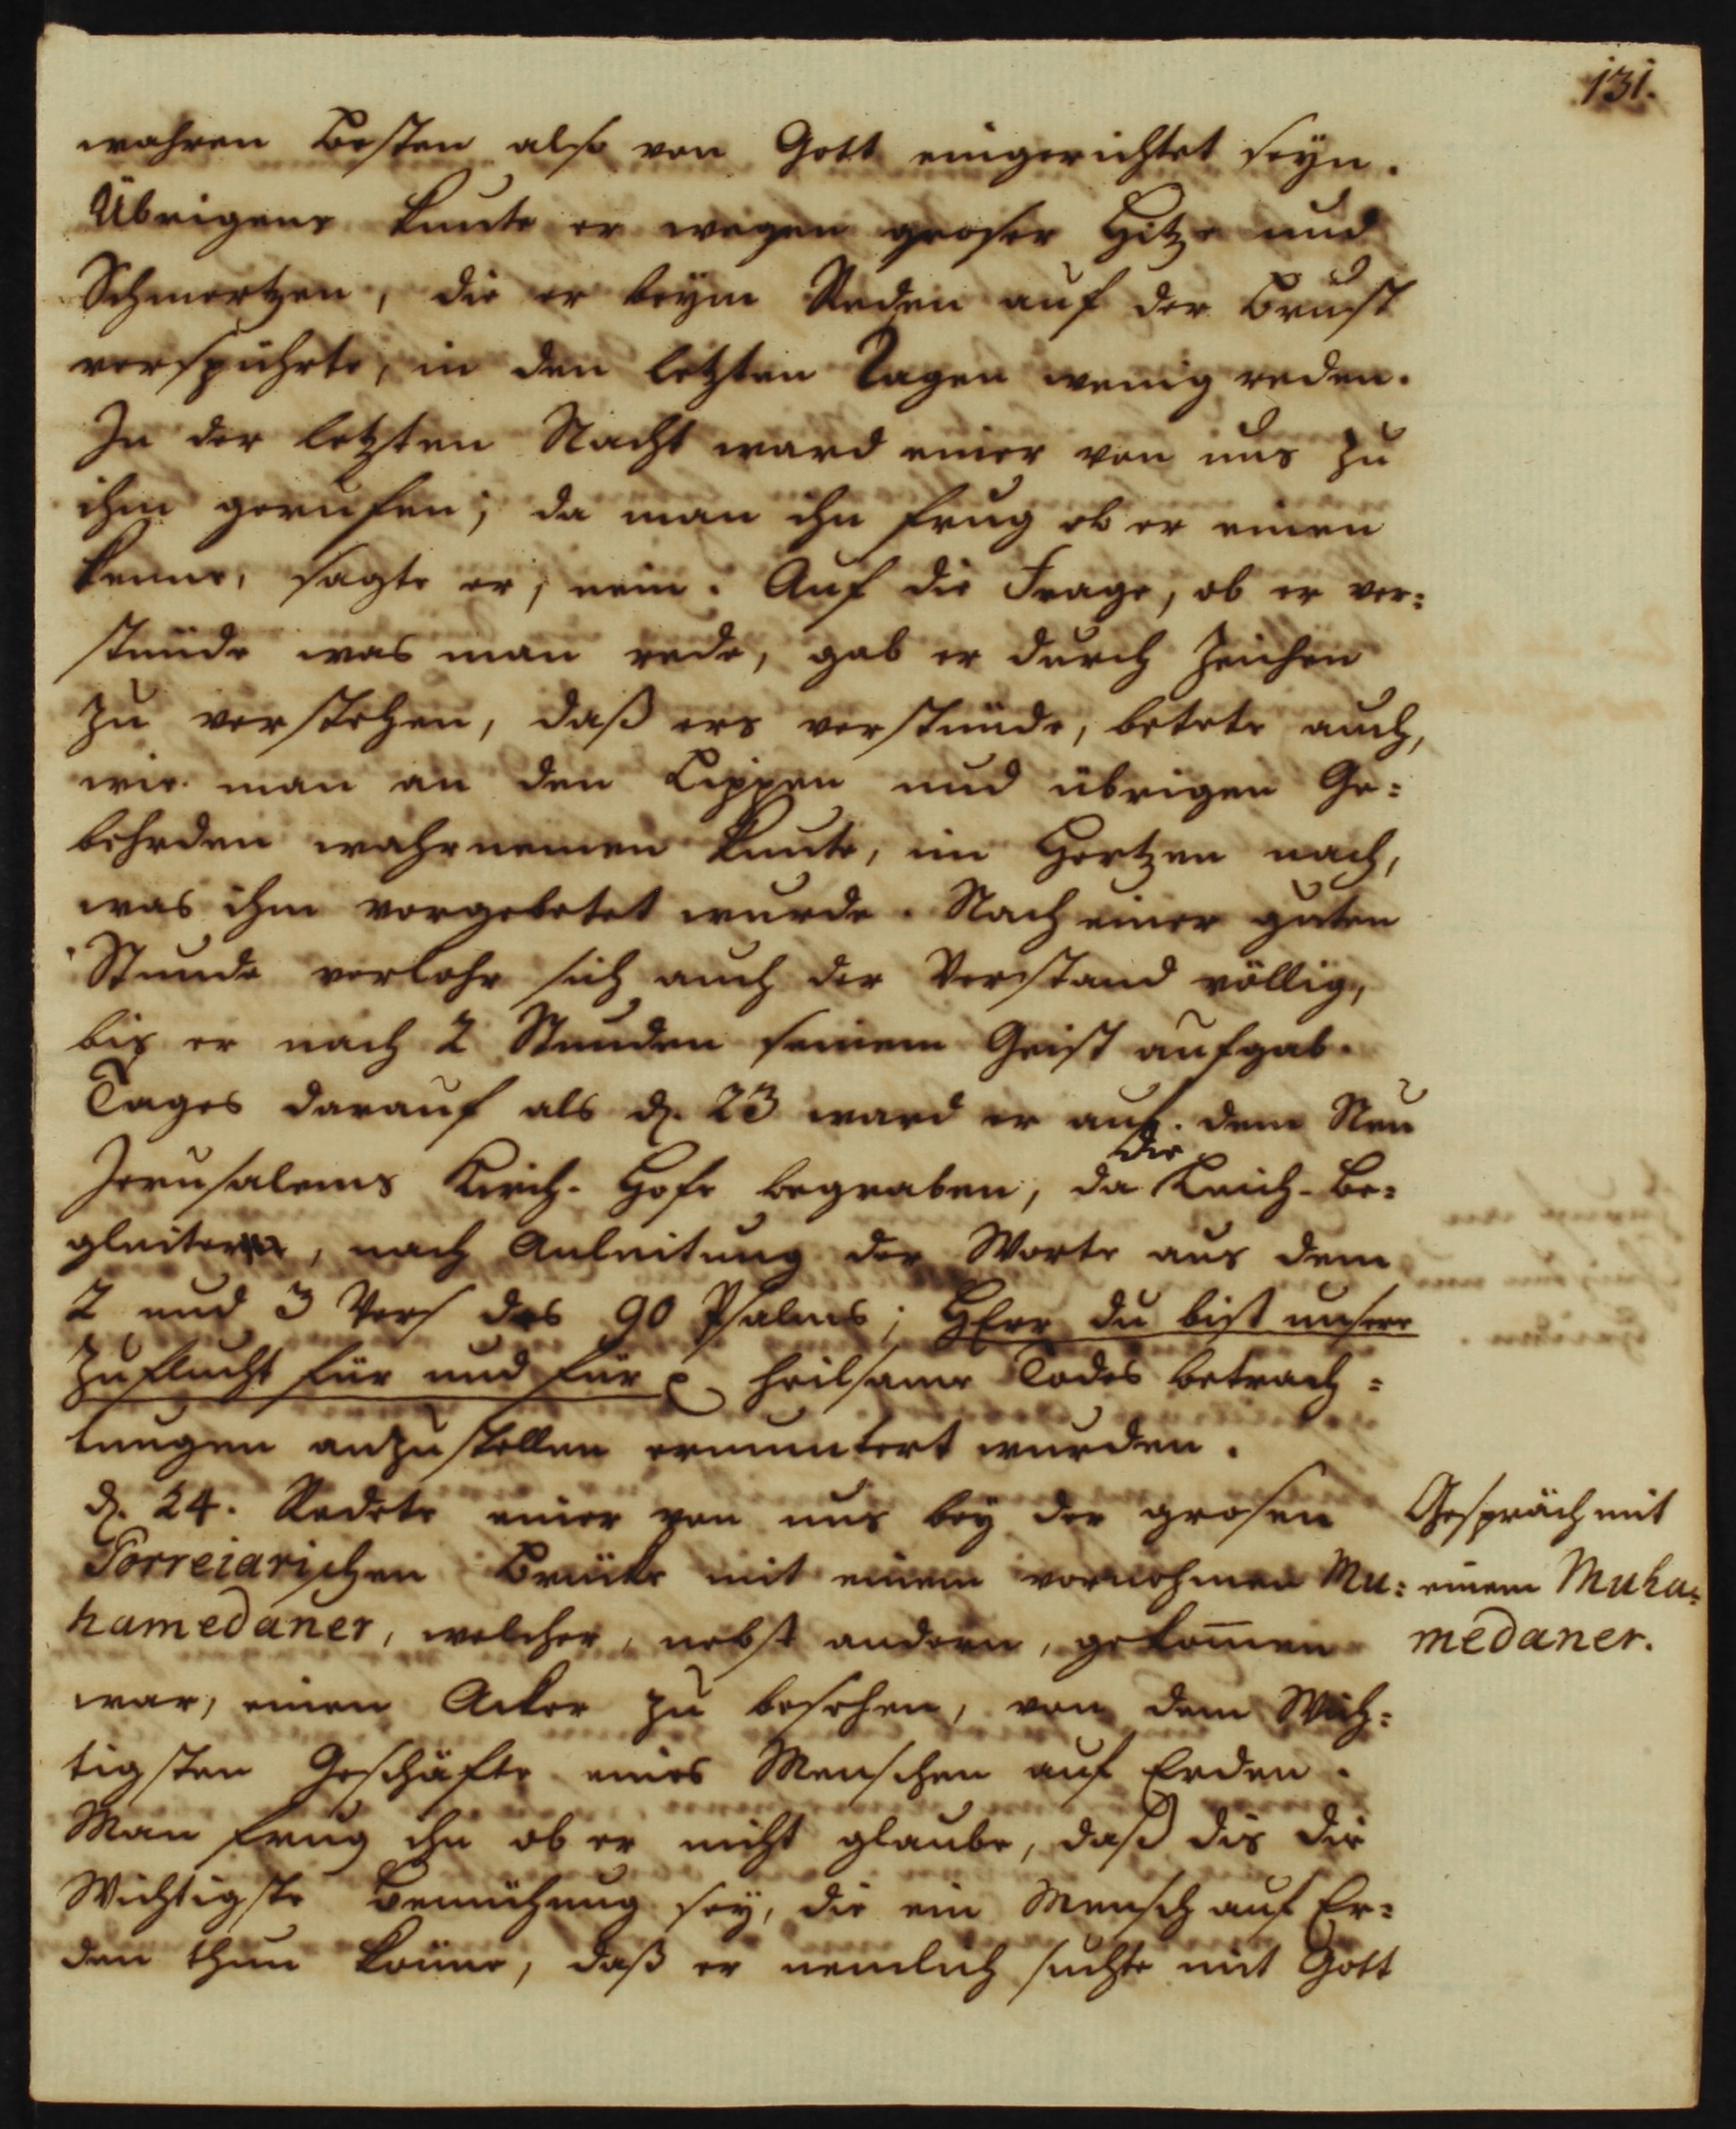 131.
wahren Besten also von Gott eingerichtet seyn.
Übrigens kunte er wegen groser Hitze und
Schmertzen, die er beym Reden auf der Brust
verspührte, in den letzten Tagen wenig reden.
In der letzten Nacht ward einer von uns zu
ihm gerufen; da man ihn frug ob er einen
kenne, sagte er, nein. Auf die Frage, ob er ver:
stünde was man rede, gab er durch Zeichen
zu verstehen, daß ers verstünde, betete auch,
wie man an den Lippen und übrigen Ge:
behrden wahrnemen kunte, im Hertzen nach,
was ihm vorgebetet wurde. Nach einer guten
Stunde verlohr sich auch der Verstand völlig,
bis er nach 2 Stunden seinem Geist aufgab.
Tages darauf als d. 23 ward er auf dem Neu
Jerusalems Kirch-Hofe begraben, da die Leich-Be:
gleiter, nach Anleitung der Worte aus dem
2 und 3 Vers des 90 Psalms; HErr du bist unsere
Zuflucht für und für heilsame Todes betrach:
tungen anzustellen ermuntert wurden.
d. 24. Redete einer von uns bey der grosen
Porreiarischen Brücke mit einem vornehmen Mu:
hamedaner, welcher, nebst andern, gekom̅en
war, einen Acker zu besehen, von dem Wich:
tigsten Geschäfte eines Menschen auf Erden.
Man frug ihn ob er nicht glaube, daß dis die
Wichtigste Bemühung sey, die ein Mensch auf Er:
den thun könne, daß er nemlich suchte mit Gott
Gespräch mit
einem Muha:
medaner.